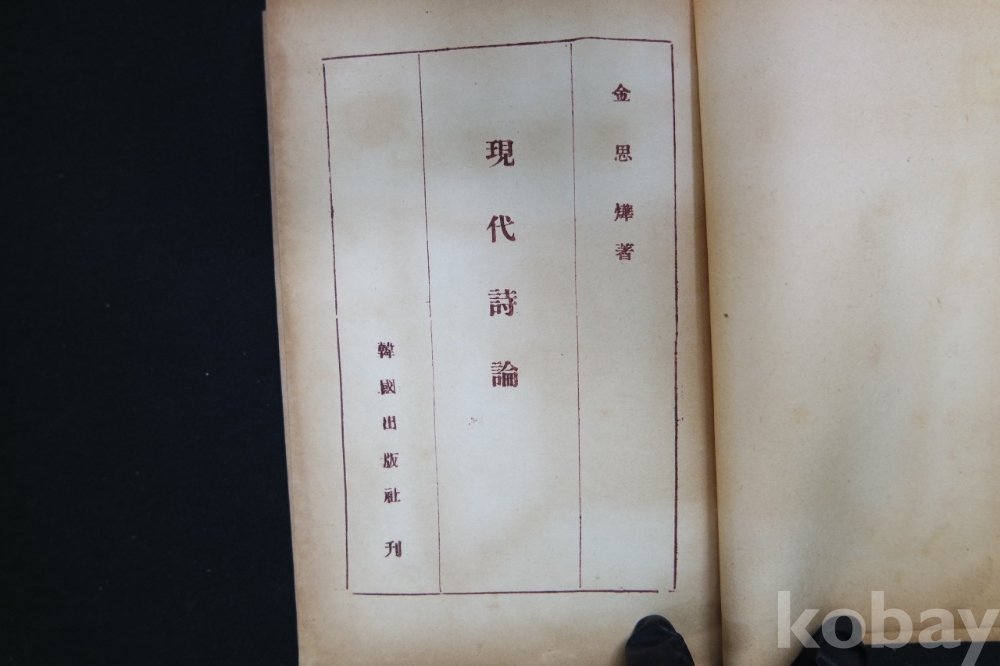 金思燁著
現代詩論
韓國出版社 刊
kobay